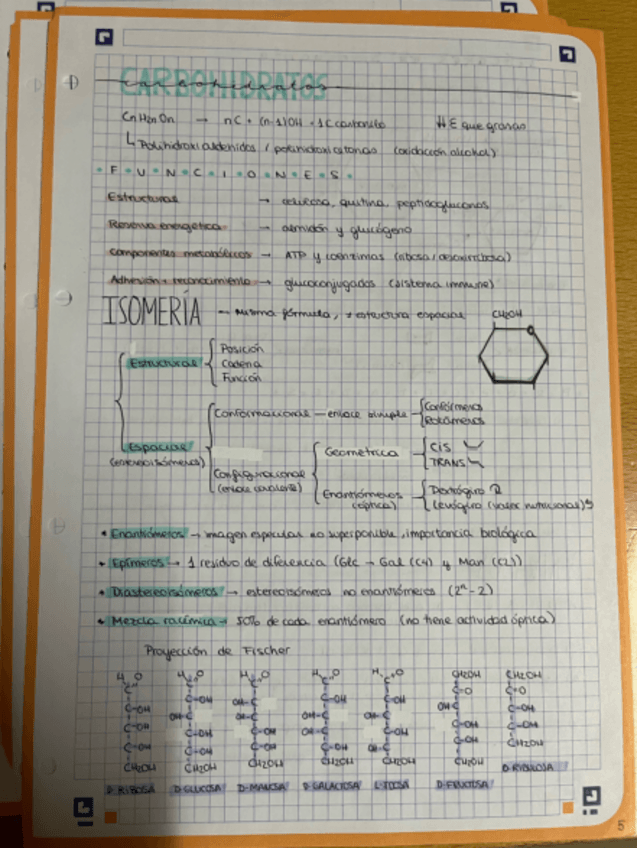 CARBOHIDRATOS
carbohidratos
CnH2nOn → nC + (n-1)OH + 1C carbonilo
↳ Polihidroxialdehidos / polihidroxicetonas (oxidación alcohol)
F · U · N · C · I · O · N · E · S
Estructural → celulosa, quitina, peptidoglucanos
Reserva energética → almidón y glucógeno
Componentes metabólicos → ATP y coenzimas (ribosa/desoxirribosa)
Adhesión + reconocimiento → glucoconjugados (sistema immune)
ISOMERÍA → misma fórmula, ≠ estructura espacial
CH2OH
Estructural
Posición
Cadena
Función
Espacial
(estereoisómeros)
Conformacional — enlace simple
Confórmeros
Rotámeros
Configuracional
(enlace covalente)
Geométrica
CIS
TRANS
Enantiómeros
(óptica)
Dextógiro
Levógiro
• Enantiómeros → imagen especular no superponible, importancia biológica
• Epímeros → 1 residuo de diferencia (Glc → Gal (C4) y Man (C2))
• Diastereoisómeros → estereoisómeros no enantiómeros (2ⁿ-2)
• Mezcla racímica → 50% de cada enantiómero (no tiene actividad óptica)
Proyección de Fischer
D-RIBOSA D-GLUCOSA D-MANOSA D-GALACTOSA D-FRUCTOSA D-RIBULOSA
5